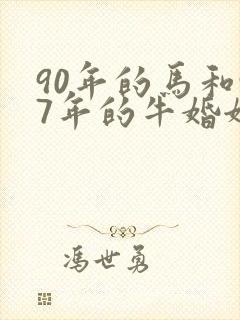 90年的馬和
7年的牛婚
馮世勇